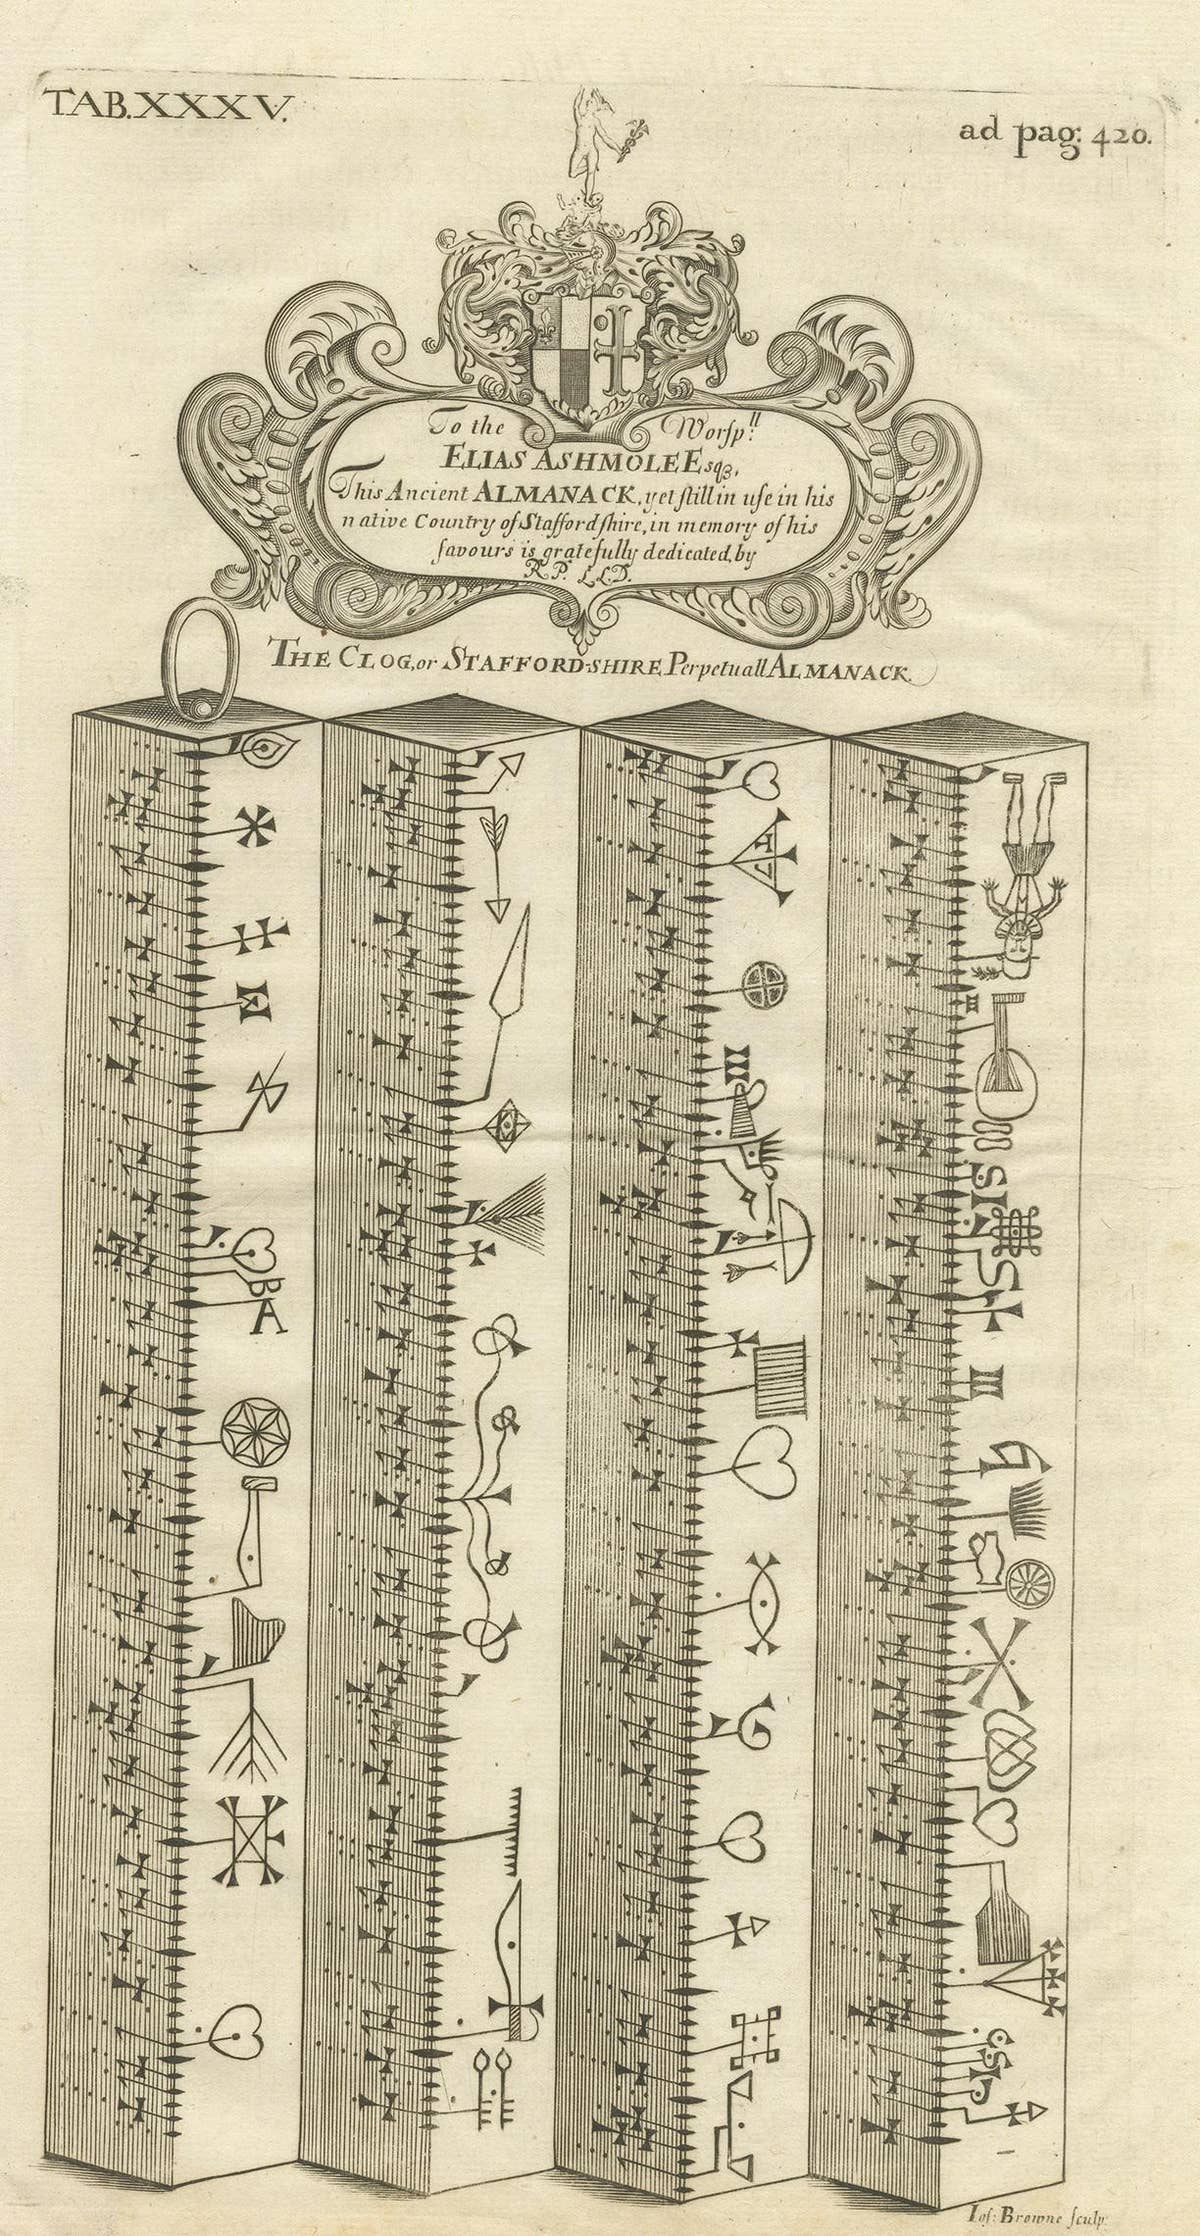 TAB.XXXV.
ad pag: 420.
To the Worſp:ll
ELIAS ASHMOLE Esqꝫ,
This Ancient ALMANACK, yet ſtill in uſe in his
native Country of Staffordſhire, in memory of his
favours is gratefully dedicated, by
R P. L L.D.
THE CLOG, or STAFFORD-SHIRE Perpetuall ALMANACK.
B
A
G
Ioſ: Browne ſculp: